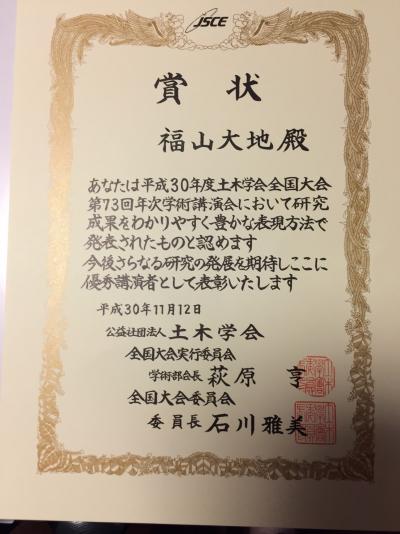 JSCE
賞状
福山大地殿
あなたは平成30年度土木学会全国大会
第73回年次学術講演会において研究
成果をわかりやすく豊かな表現方法で
発表されたものと認めます
今後さらなる研究の発展を期待しここに
優秀講演者として表彰いたします
平成30年11月12日
公益社団法人 土木学会
全国大会実行委員会
学術部会長 萩原 亨
全国大会委員会
委員長 石川雅美